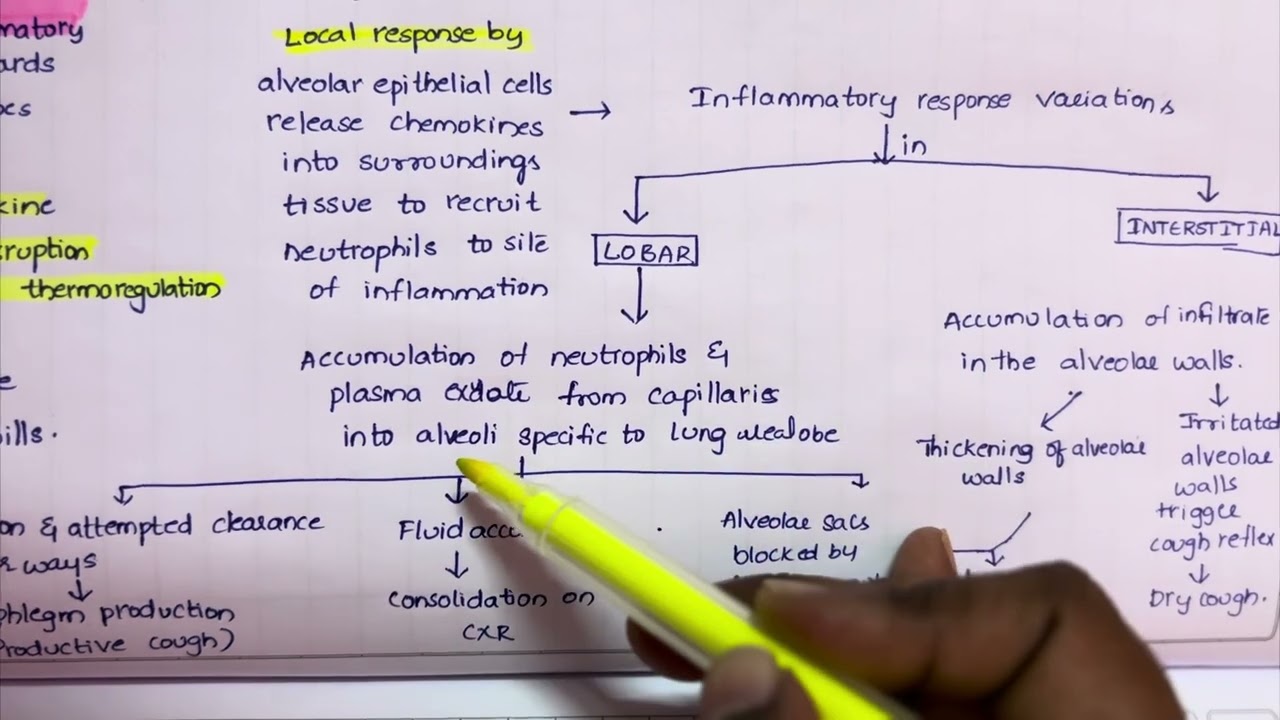 matory
ards
kine
ruption
thermoregulation
ills.
Local response by
alveolar epithelial cells
release chemokines
into surroundings
tissue to recruit
neutrophils to site
of inflammation
Inflammatory response variations
in
LOBAR
INTERSTITIAL
Accumulation of neutrophils &
plasma exdate from capillaries
into alveoli specific to lung
on & attempted clearance
ways
phlegm production
Productive cough)
Fluid acc
Consolidation on
CXR
Alveolar sacs
blocked by
Accumulation of infiltrate
in the alveolar walls.
Thickening of alveolar
walls
Irritated
alveolar
walls
trigger
cough reflex
Dry cough.